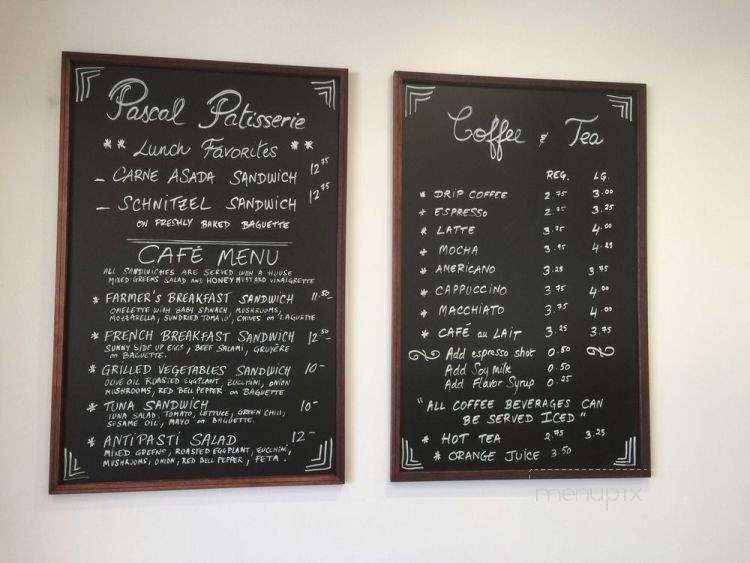 Pascal Patisserie
** Lunch Favorites **
- CARNE ASADA SANDWICH 12 75
- SCHNITZEL SANDWICH 12 75
ON FRESHLY BAKED BAGUETTE
CAFÉ MENU
ALL SANDWICHES ARE SERVED WITH A HOUSE
MIXED GREENS SALAD AND HONEY MUSTARD VINAIGRETTE
* FARMER'S BREAKFAST SANDWICH 11.50-
OMELETTE WITH BABY SPINACH, MUSHROOMS,
MOZZARELLA, SUNDRIED TOMATO, CHIVES ON BAGUETTE
* FRENCH BREAKFAST SANDWICH 12 50-
SUNNY SIDE UP EGGS, BEEF SALAMI, GRUYÈRE
ON BAGUETTE.
* GRILLED VEGETABLES SANDWICH 10-
OLIVE OIL ROASTED EGGPLANT, ZUCCHINI, ONION
MUSHROOMS, RED BELL PEPPER ON BAGUETTE
* TUNA SANDWICH 10-
TUNA SALAD, TOMATO, LETTUCE, GREEN CHILI,
SESAME OIL, MAYO ON BAGUETTE.
* ANTIPASTI SALAD 12-
MIXED GREENS, ROASTED EGGPLANT, ZUCCHINI,
MUSHROOMS, ONION, RED BELL PEPPER, FETA.
Coffee & Tea
REG. LG.
* DRIP COFFEE 2.75 3.00
* ESPRESSO 3.25
* LATTE 4.00
* MOCHA
* AMERICANO 3.25 3.75
* CAPPUCCINO 3.75 4.00
* MACCHIATO 3.75 4.00
* CAFÉ au LAIT 3.25 3.75
Add espresso shot 0.50
Add Soy milk 0.50
Add Flavor Syrup 0.25
"ALL COFFEE BEVERAGES CAN
BE SERVED ICED"
* HOT TEA 2.75 3.25
* ORANGE JUICE 3.50
menupix